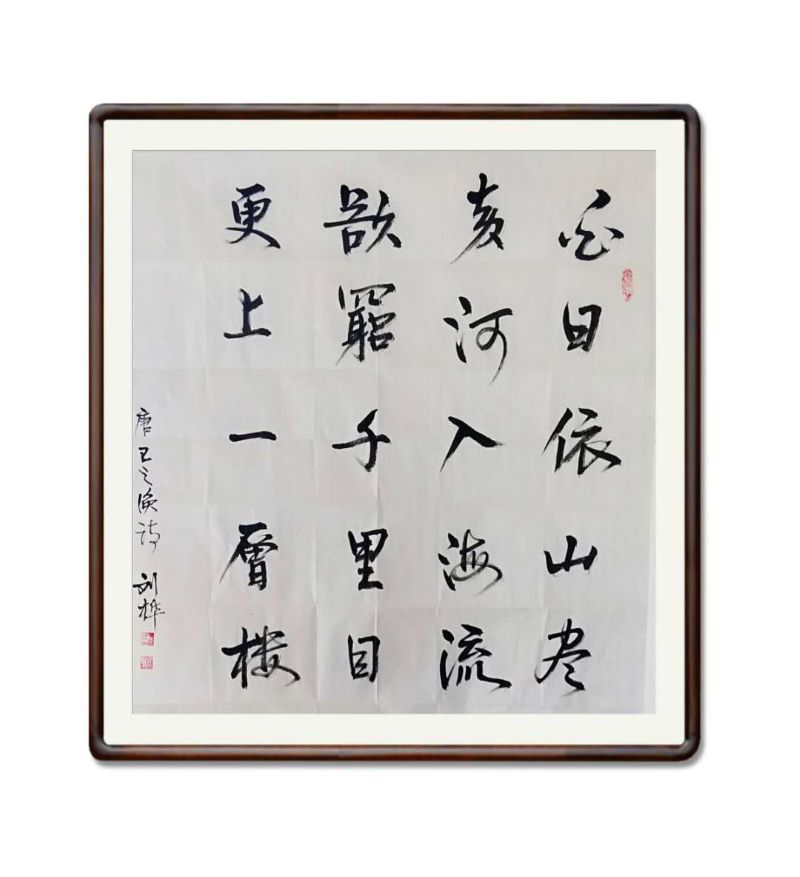 白日依山尽
黄河入海流
欲窮千里目
更上一層楼
唐王之涣诗 刘桦